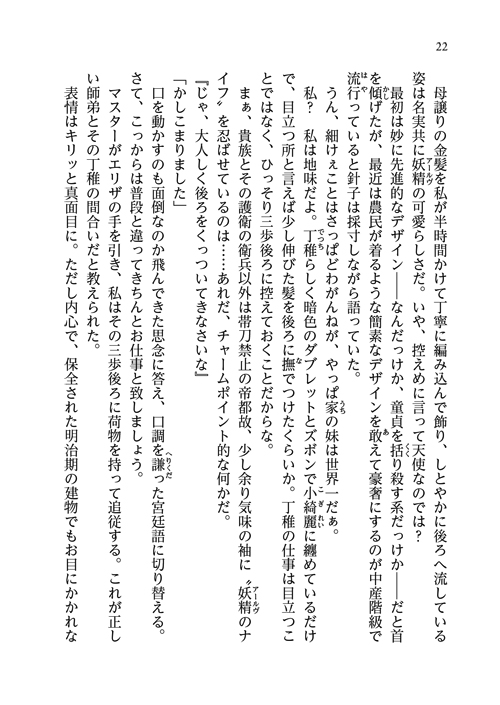 22
母譲りの金髪を私が半時間かけて丁寧に編み込んで飾り、しとやかに後ろへ流している
姿は名実共に妖精の可愛らしさだ。いや、控えめに言って天使なのでは？
最初は妙に先進的なデザイン――なんだっけか、童貞を括り殺す系だっけか――だと首
を傾げたが、最近は農民が着るような簡素なデザインを敢えて豪奢にするのが中産階級で
流行っていると針子は採寸しながら語っていた。
うん、細けぇことはさっぱどわがんねが、やっぱ家の妹は世界一だぁ。
私？　私は地味だよ。丁稚らしく暗色のダブレットとズボンで小綺麗に纏めているだけ
で、目立つ所と言えば少し伸びた髪を後ろに撫でつけたくらいか。丁稚の仕事は目立つこ
とではなく、ひっそり三歩後ろに控えておくことだからな。
まぁ、貴族とその護衛の衛兵以外は帯刀禁止の帝都故、少し余り気味の袖に〝妖精のナ
イフ〟を忍ばせているのは……あれだ、チャームポイント的な何かだ。
『じゃ、大人しく後ろをくっついてきなさいな』
「かしこまりました」
口を動かすのも面倒なのか飛んできた思念に答え、口調を謙った宮廷語に切り替える。
さて、こっからは普段と違ってきちんとお仕事と致しましょう。
マスターがエリザの手を引き、私はその三歩後ろに荷物を持って追従する。これが正し
い師弟とその丁稚の間合いだと教えられた。
表情はキリッと真面目に。ただし内心で、保全された明治期の建物でもお目にかかれな